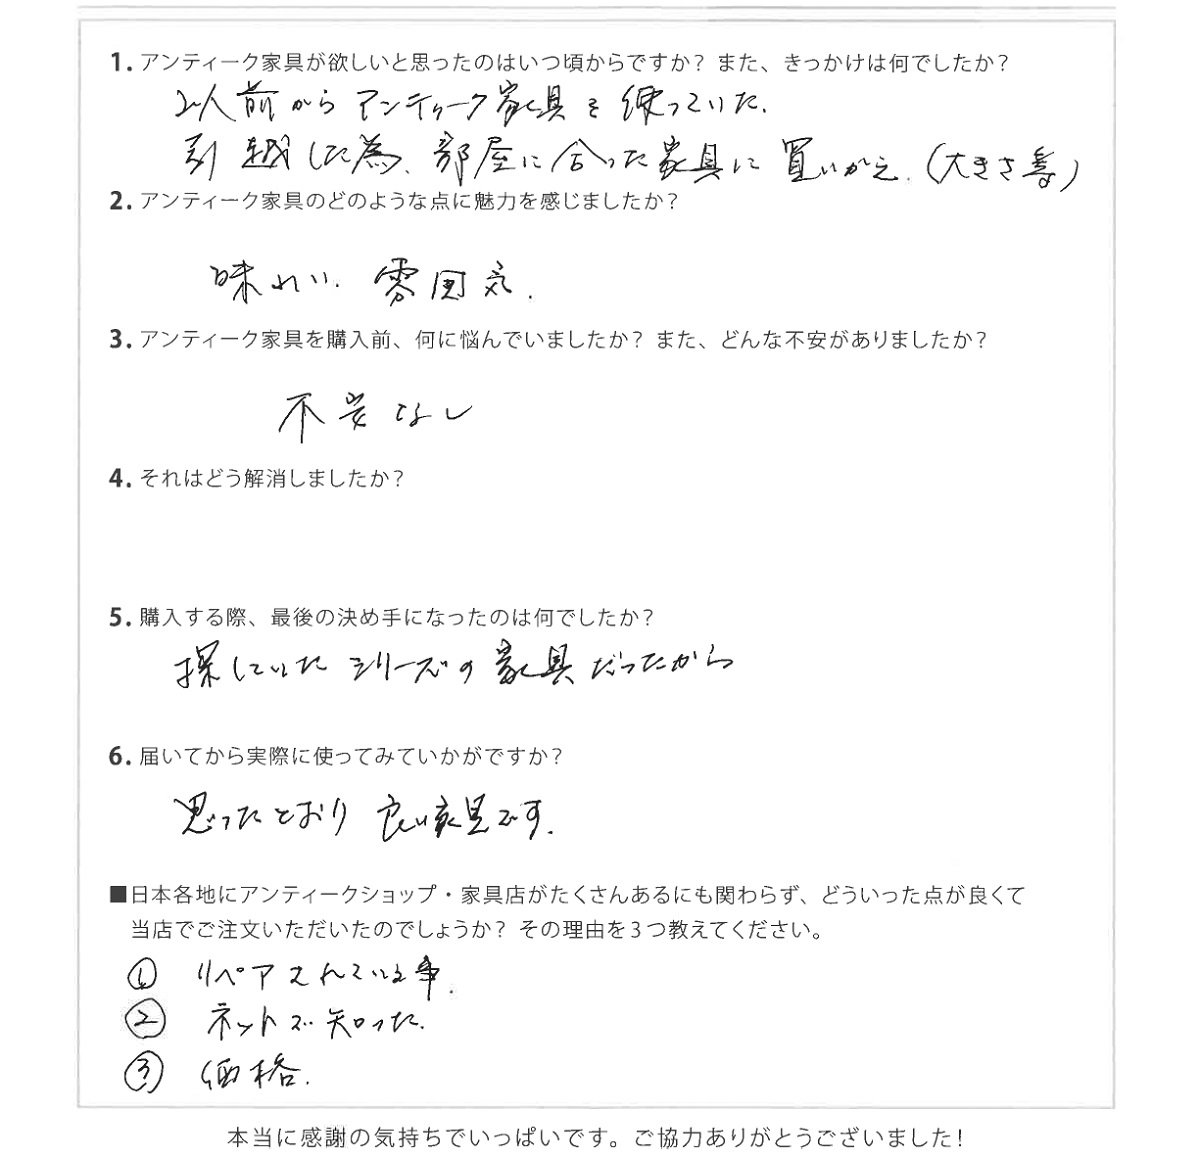 1. アンティーク家具が欲しいと思ったのはいつ頃からですか？ また、きっかけは何でしたか？
前からアンティーク家具を使っていた.
引越した為、部屋に合った家具に買いかえ.（大きさ等）
2. アンティーク家具のどのような点に魅力を感じましたか？
味わい. 雰囲気.
3. アンティーク家具を購入前、何に悩んでいましたか？ また、どんな不安がありましたか？
不安なし
4. それはどう解消しましたか？
5. 購入する際、最後の決め手になったのは何でしたか？
探していたシリーズの家具だったから
6. 届いてから実際に使ってみていかがですか？
思ったとおり良い家具です.
■日本各地にアンティークショップ・家具店がたくさんあるにも関わらず、どういった点が良くて
当店でご注文いただいたのでしょうか？ その理由を３つ教えてください。
① リペアされている事.
② ネットで知った.
③ 価格.
本当に感謝の気持ちでいっぱいです。ご協力ありがとうございました！